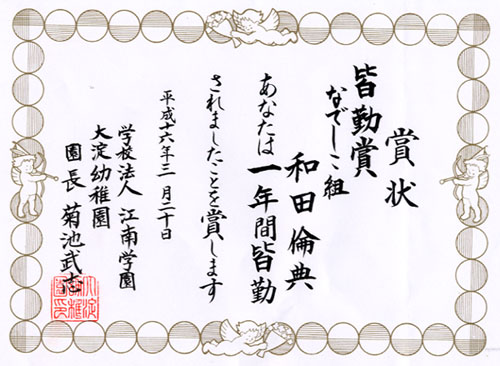 賞状
皆勤賞
なでしこ組
和田倫典
あなたは一年間皆勤
されましたことを賞します
平成十六年三月二十日
学校法人 江南学園
大淀幼稚園
園長 菊池武志